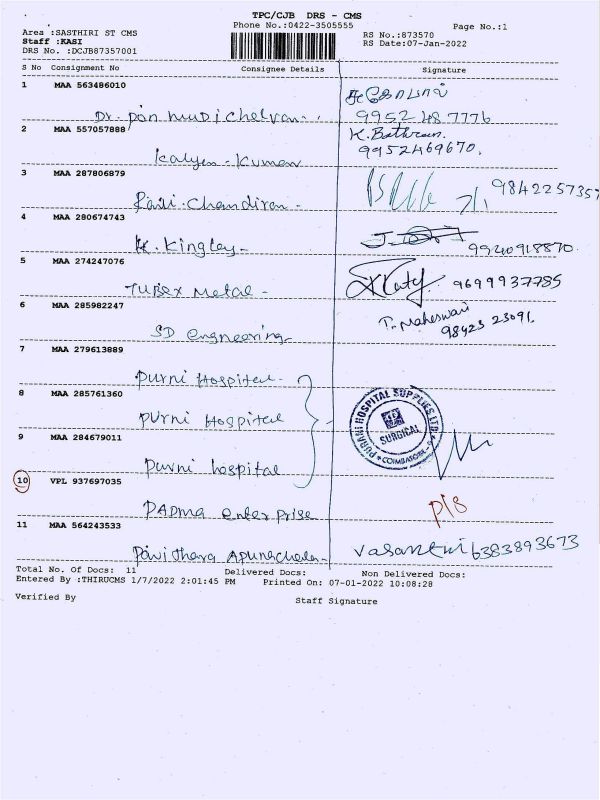 TPC/CJB DRS - CMS
Phone No.:0422-3505555
Page No.:1
Area :SASTHIRI ST CMS
Staff :KASI
DRS No. :DCJB87357001
RS No.:873570
RS Date:07-Jan-2022
S No Consignment No Consignee Details Signature
1 MAA 563486010
Dr. pon mudichelvan
9952487776
2 MAA 557057888
K. Bathran
9952469670.
Kalyan - Kuman
3 MAA 287806879
9842257357
Ravi. Chandiran -
4 MAA 280674743
K. Kingley -
9940918870
5 MAA 274247076
9699937785
Tubex Metal -
6 MAA 285982247
T. Maheswari
98423 23091.
SD engneering
7 MAA 279613889
Purni Hospital -
8 MAA 285761360
Purni Hospital
PURANI HOSPITAL SUPPLIES LTD
SURGICAL
COIMBATORE
9 MAA 284679011
Purni hospital
10 VPL 937697035
PADMA enterprise
P/S
11 MAA 564243533
Pavithara Apunachalan
Vasanthi 6383893673
Total No. Of Docs: 11 Delivered Docs: Non Delivered Docs:
Entered By :THIRUCMS 1/7/2022 2:01:45 PM Printed On: 07-01-2022 10:08:28
Verified By Staff Signature